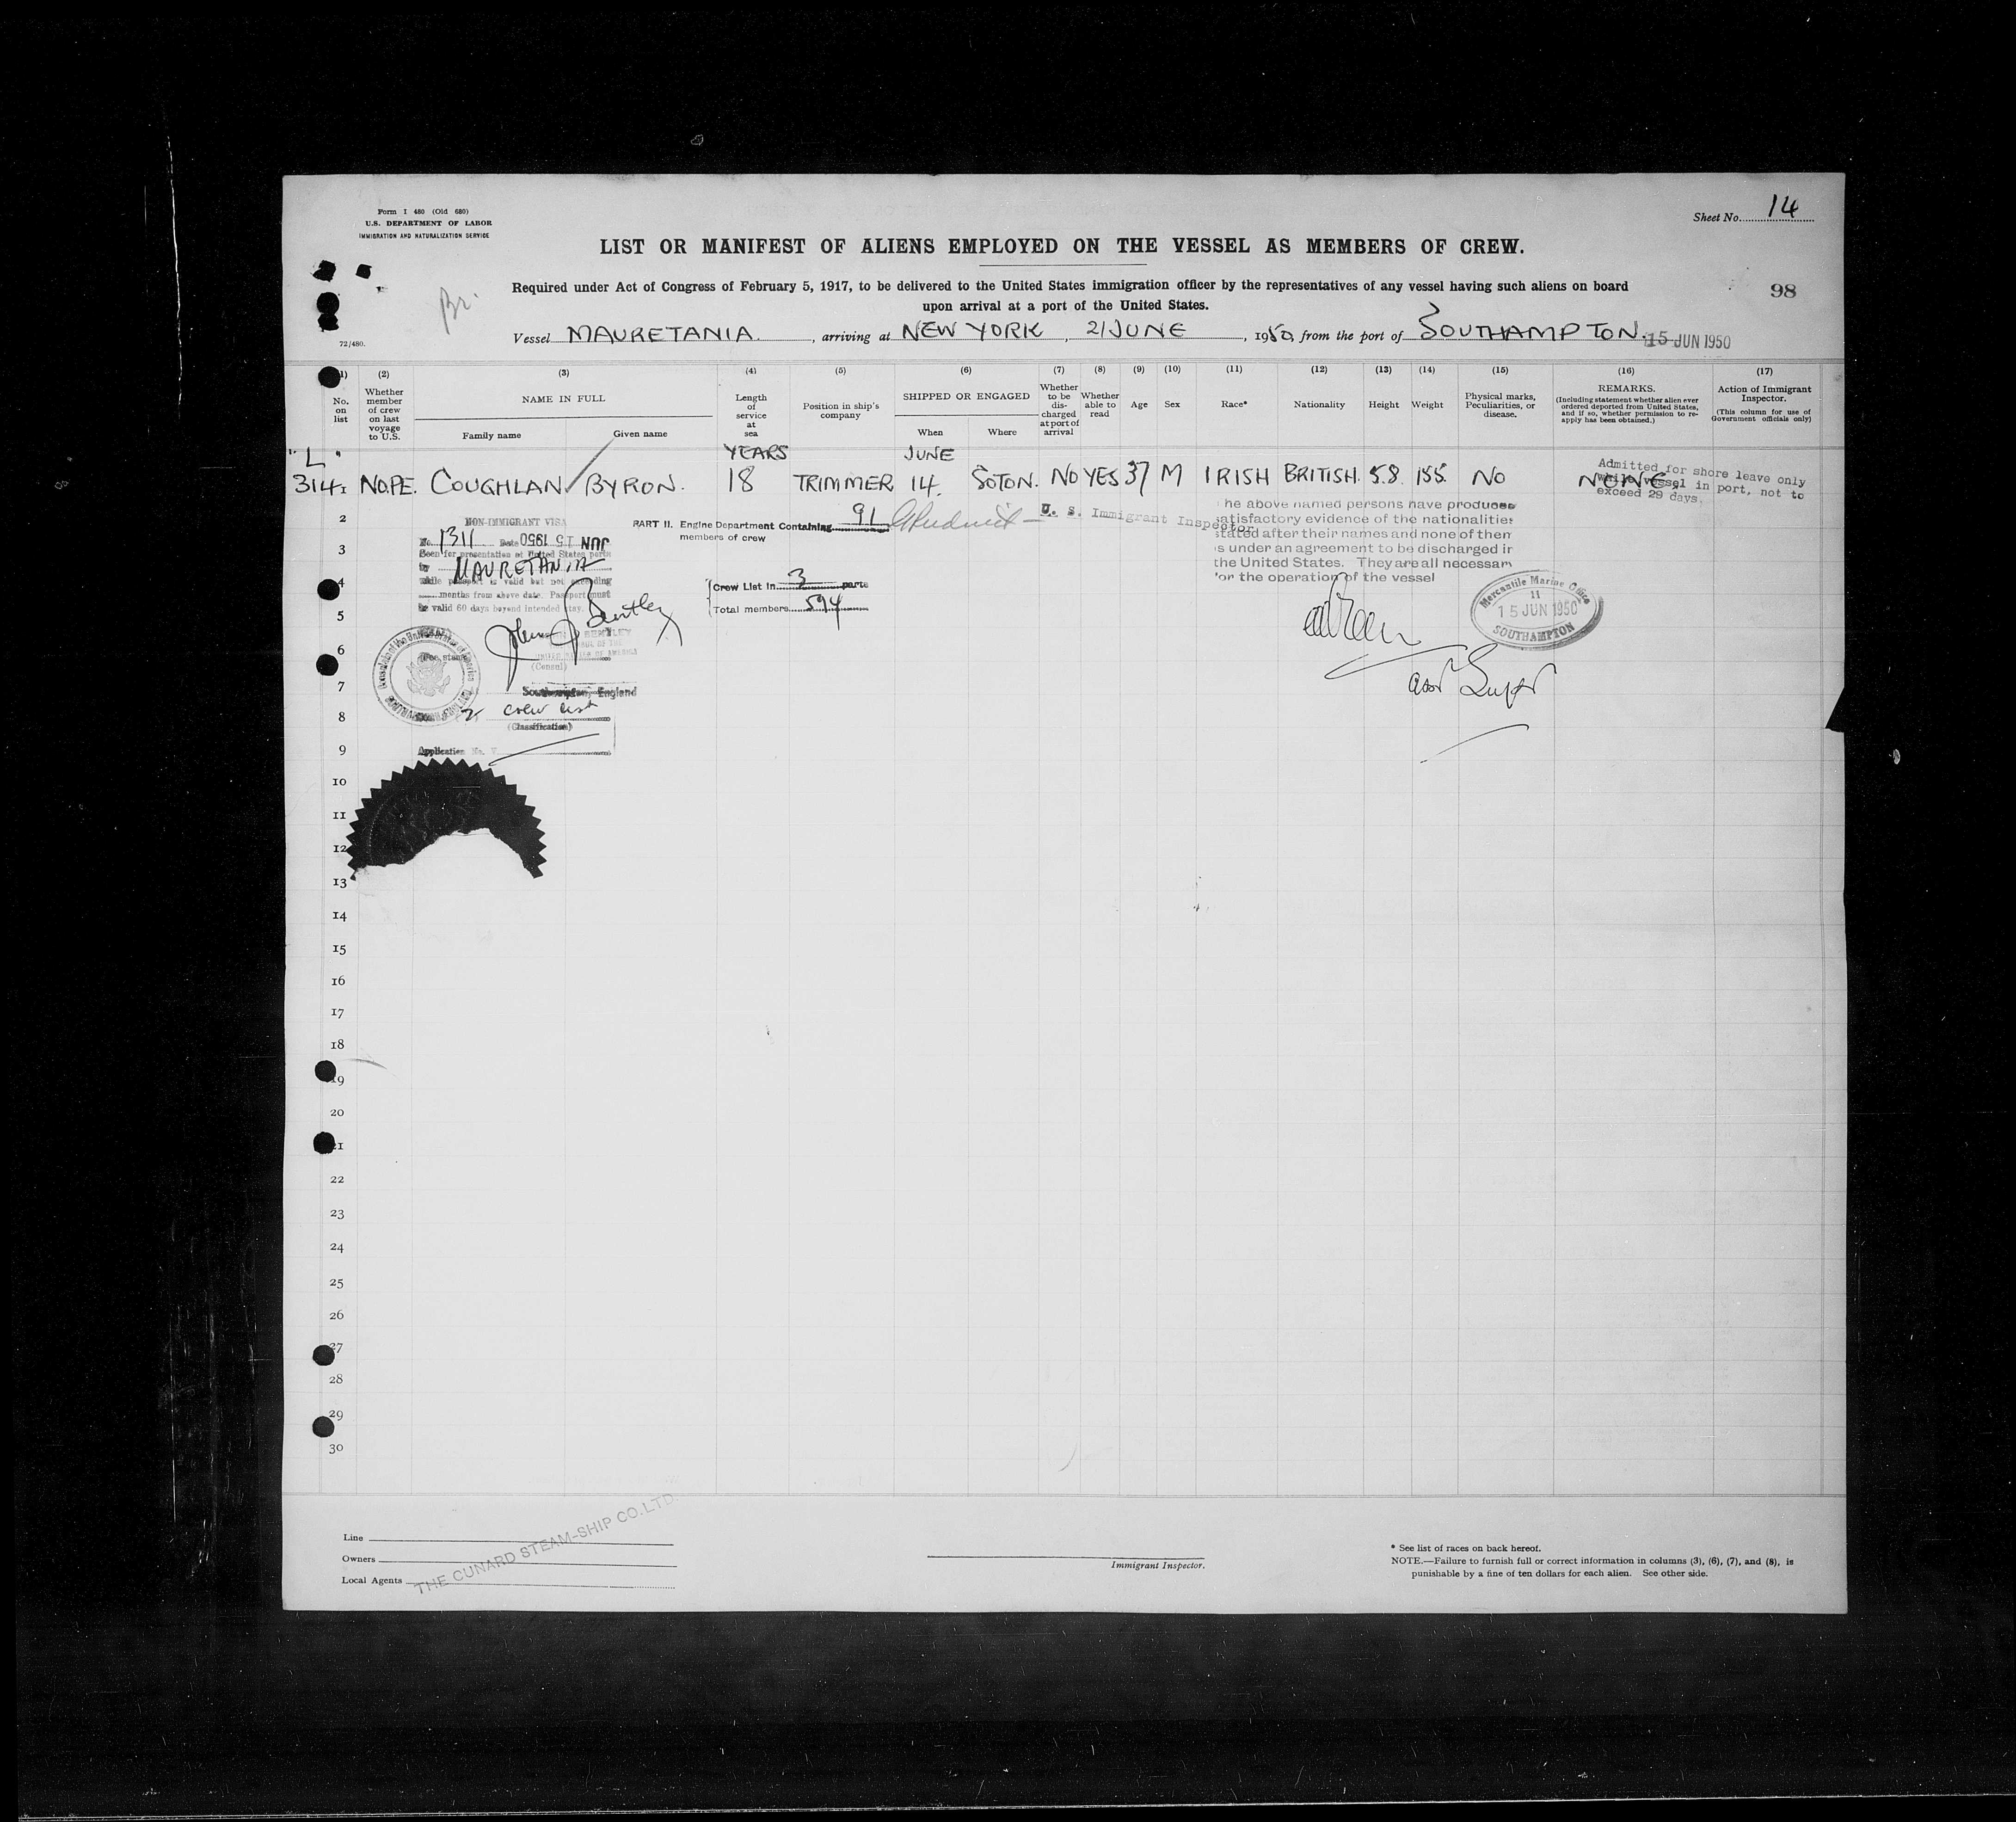 Form I 480 (Old 680)
U.S. DEPARTMENT OF LABOR
IMMIGRATION AND NATURALIZATION SERVICE
Sheet No. 14
LIST OR MANIFEST OF ALIENS EMPLOYED ON THE VESSEL AS MEMBERS OF CREW.
Required under Act of Congress of February 5, 1917, to be delivered to the United States immigration officer by the representatives of any vessel having such aliens on board
upon arrival at a port of the United States.
98
Br.
Vessel MAURETANIA. , arriving at NEW YORK , 21 JUNE , 1950, from the port of SOUTHAMPTON. 15 JUN 1950
72/480.
(1) No. on list
(2) Whether member of crew on last voyage to U.S.
(3) NAME IN FULL
Family name Given name
(4) Length of service at sea
(5) Position in ship's company
(6) SHIPPED OR ENGAGED
When Where
(7) Whether to be discharged at port of arrival
(8) Whether able to read
(9) Age
(10) Sex
(11) Race*
(12) Nationality
(13) Height
(14) Weight
(15) Physical marks, Peculiarities, or disease.
(16) REMARKS.
(Including statement whether alien ever ordered deported from United States, and if so, whether permission to re-apply has been obtained.)
(17) Action of Immigrant Inspector.
(This column for use of Government officials only)
"L" YEARS JUNE
314 1 NO.PE. COUGHLAN / BYRON. 18 TRIMMER 14. SOTON. NO YES 37 M IRISH BRITISH. 5.8. 155. NO NONE.
Admitted for shore leave only
while vessel in port, not to
exceed 29 days.
2
3
4
5
6
7
8
9
10
11
12
13
14
15
16
17
18
19
20
21
22
23
24
25
26
27
28
29
30
NON-IMMIGRANT VISA
No. 1311 Date JUN 15 1950
Seen for presentation at United States ports
by MAURETANIA
while passport is valid but not exceeding
months from above date. Passport must
be valid 60 days beyond intended stay.
John J Bentley
UNITED STATES OF AMERICA
(Consul)
(Fee stamp)
Southampton, England
crew list
(Classification)
Application No. V
PART II. Engine Department Containing 91
members of crew
Crew List in 3 parts
Total members 594
U. S. Immigrant Inspector
he above named persons have produced
satisfactory evidence of the nationalities
stated after their names and none of them
is under an agreement to be discharged in
the United States. They are all necessary
for the operation of the vessel
Mercantile Marine Office
11
15 JUN 1950
SOUTHAMPTON
Line
Owners
Local Agents
THE CUNARD STEAM-SHIP CO. LTD.
Immigrant Inspector.
* See list of races on back hereof.
NOTE.—Failure to furnish full or correct information in columns (3), (6), (7), and (8), is
punishable by a fine of ten dollars for each alien. See other side.